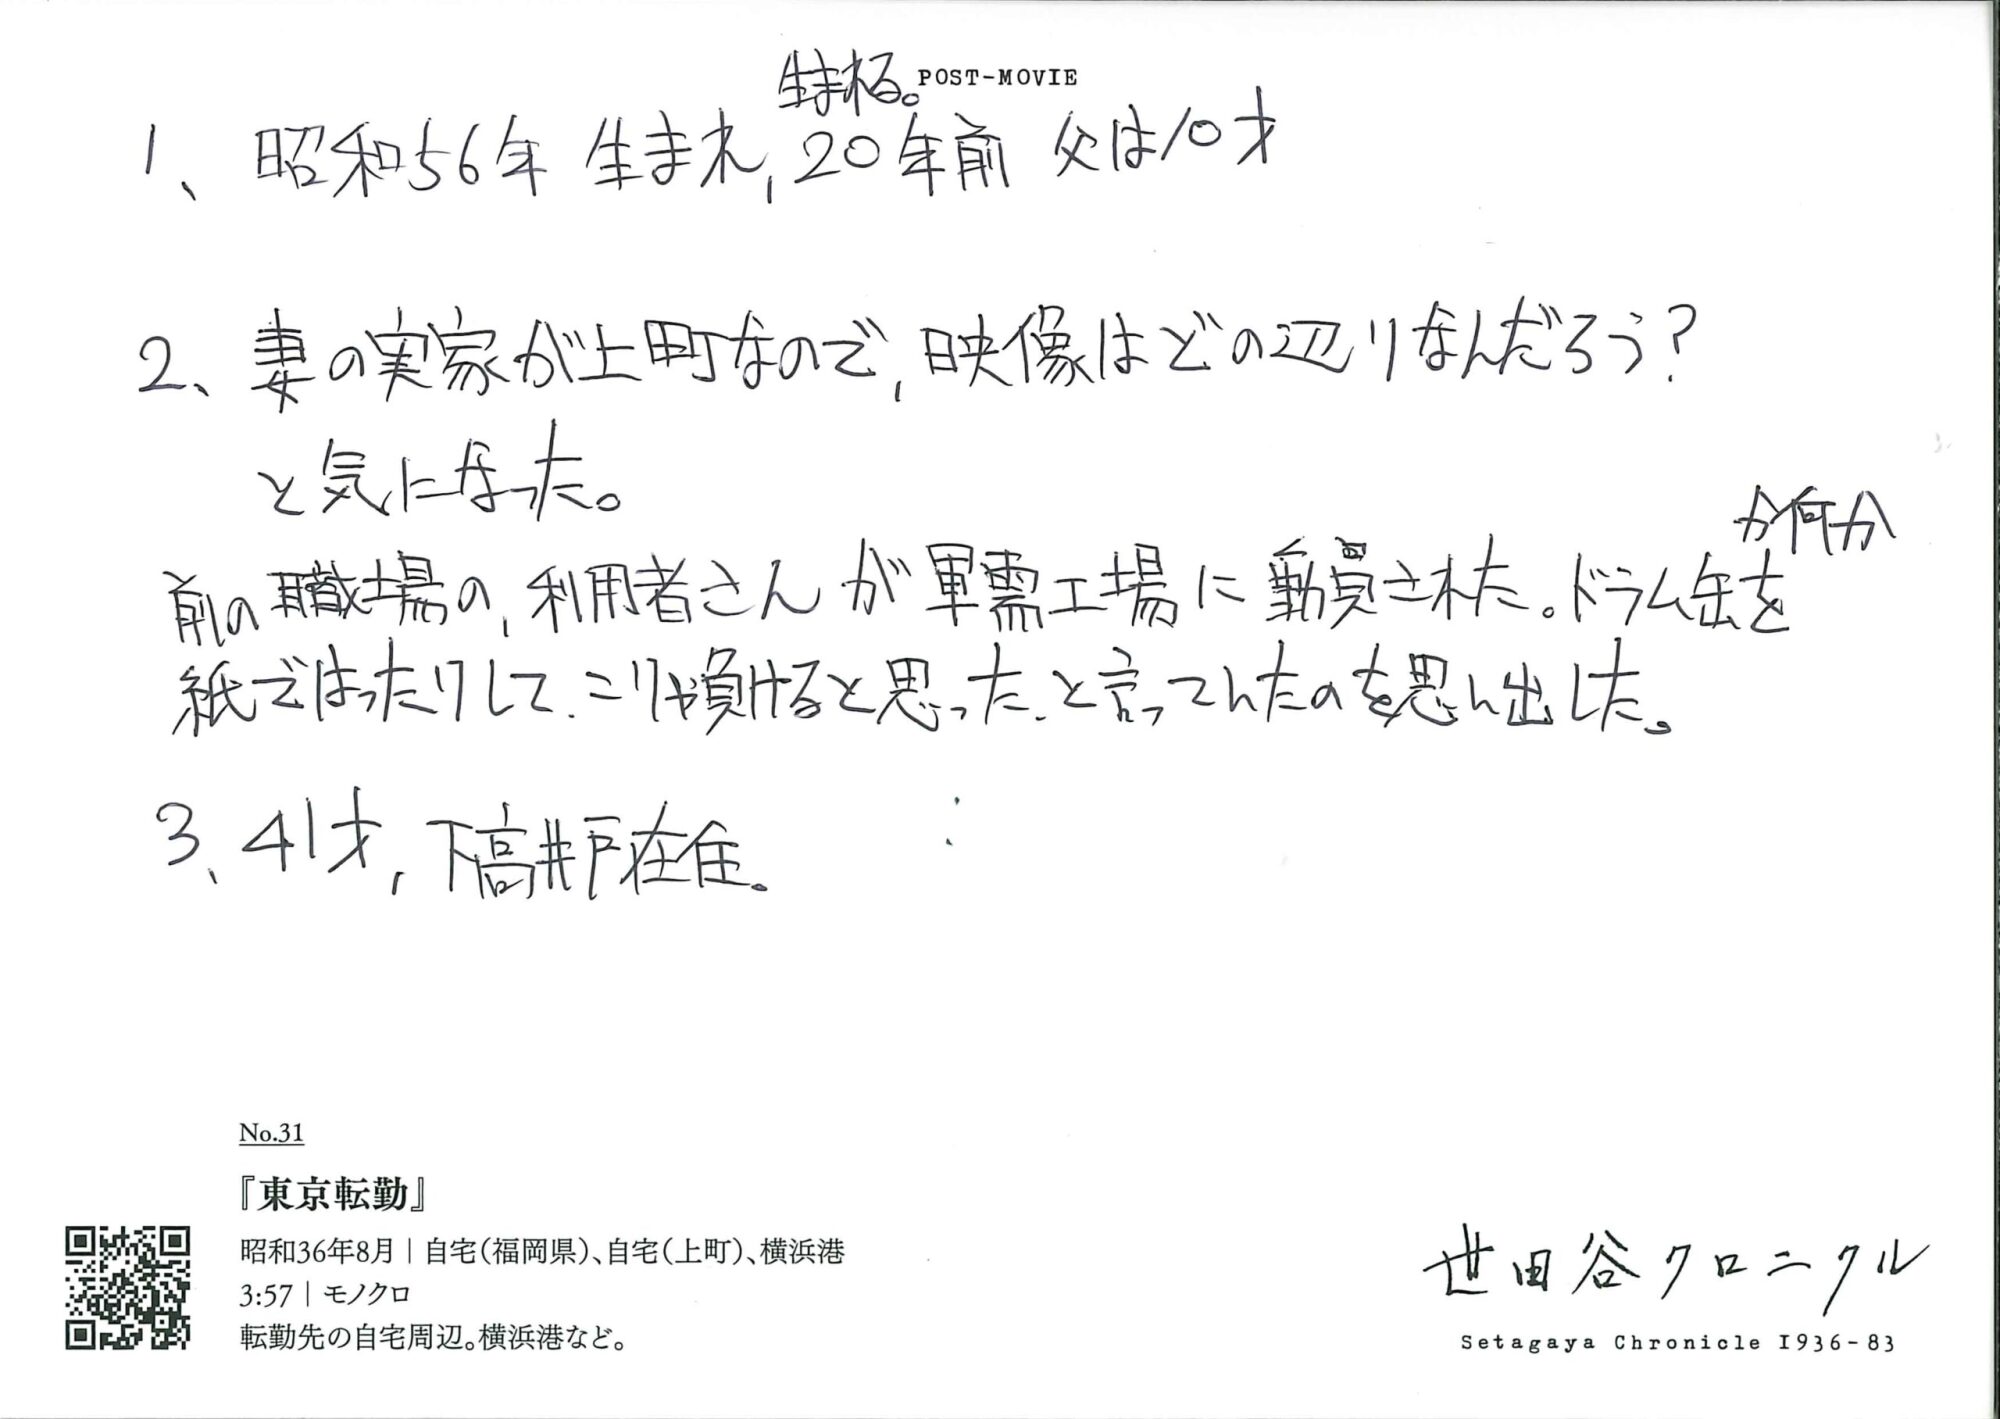 POST-MOVIE
生まれる。
1、昭和56年 生まれ, 20年前 父は10才
2、妻の実家が上町なので, 映像はどの辺りなんだろう?
と気になった。
か何か
前の職場の, 利用者さんが軍需工場に動員された。ドラム缶を
紙ではったりして、こりゃ負けると思った、と言ってたのを思い出した。
3、41才, 下高井戸在住。
No.31
『東京転勤』
昭和36年8月|自宅(福岡県)、自宅(上町)、横浜港
3:57|モノクロ
転勤先の自宅周辺。横浜港など。
世田谷クロニクル
Setagaya Chronicle 1936-83